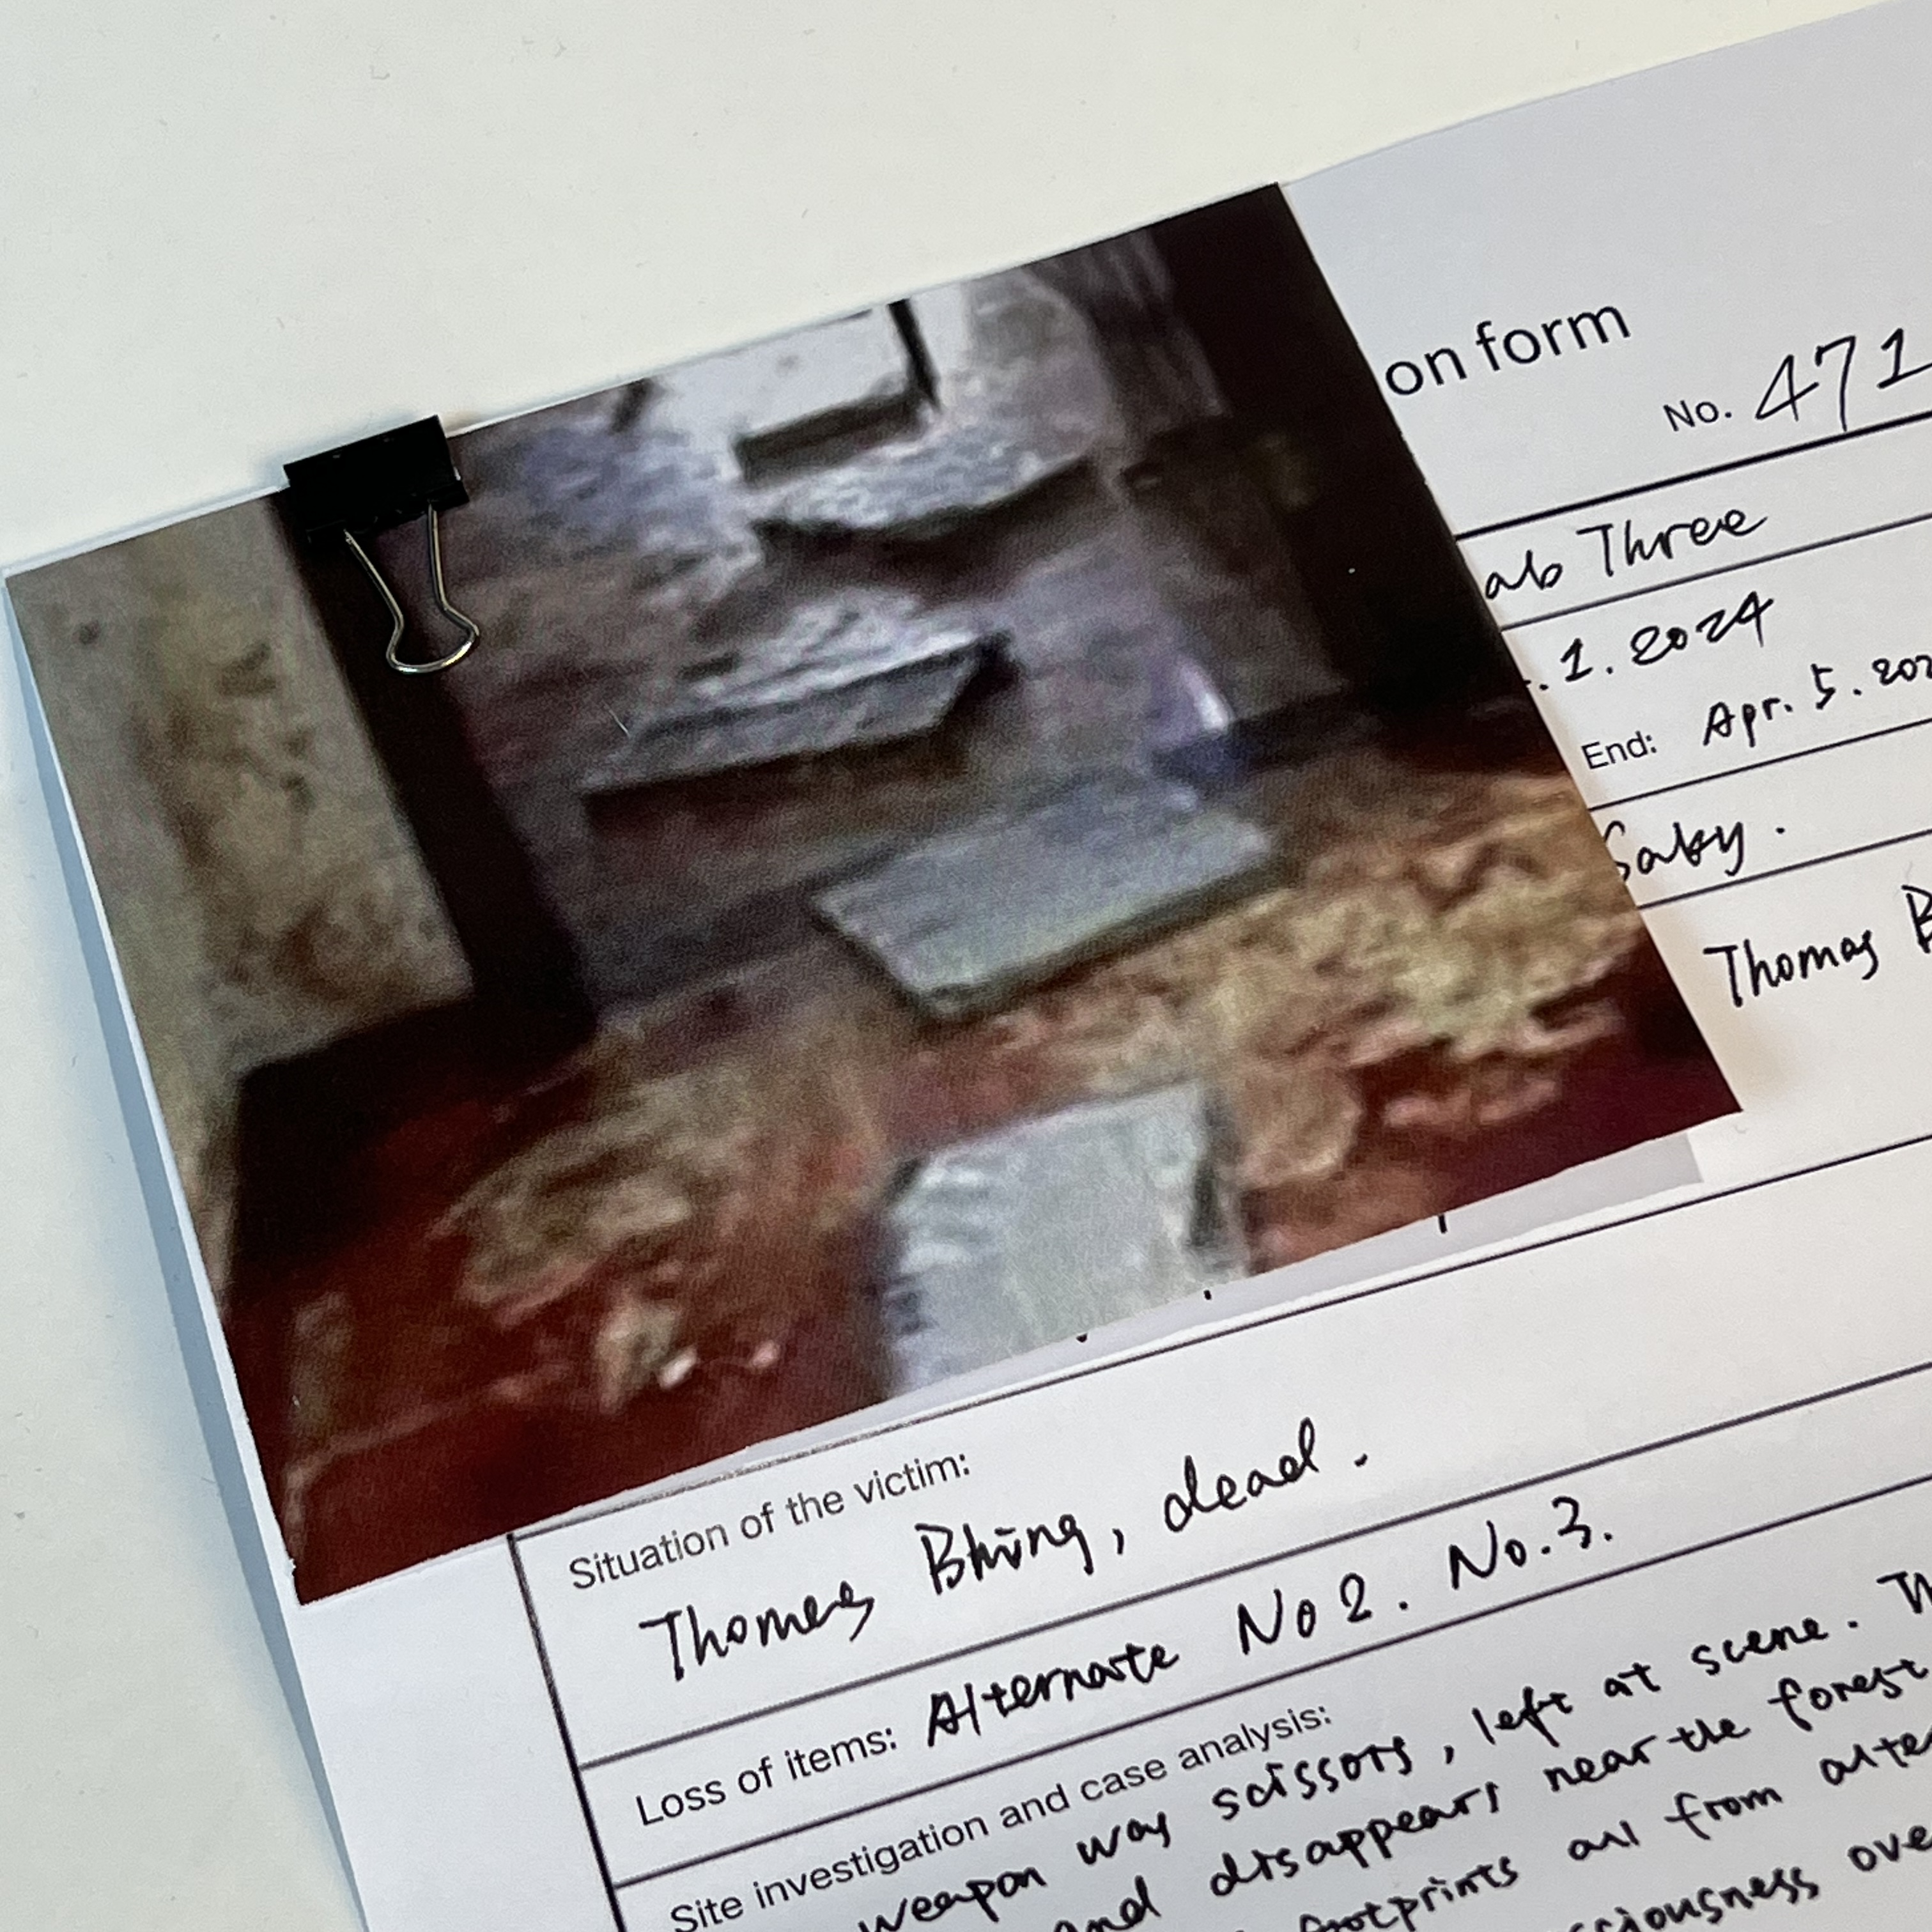 on form
No. 471
ab Three
. 1. 2024
End: Apr. 5. 202
Saby.
Thomas B
Situation of the victim:
Thomas Bhing, dead.
Loss of items: Alternate No 2. No. 3.
Site investigation and case analysis:
weapon was scissors, left at scene.
and disappears near the forest
footprints all from alte
ciousness ove